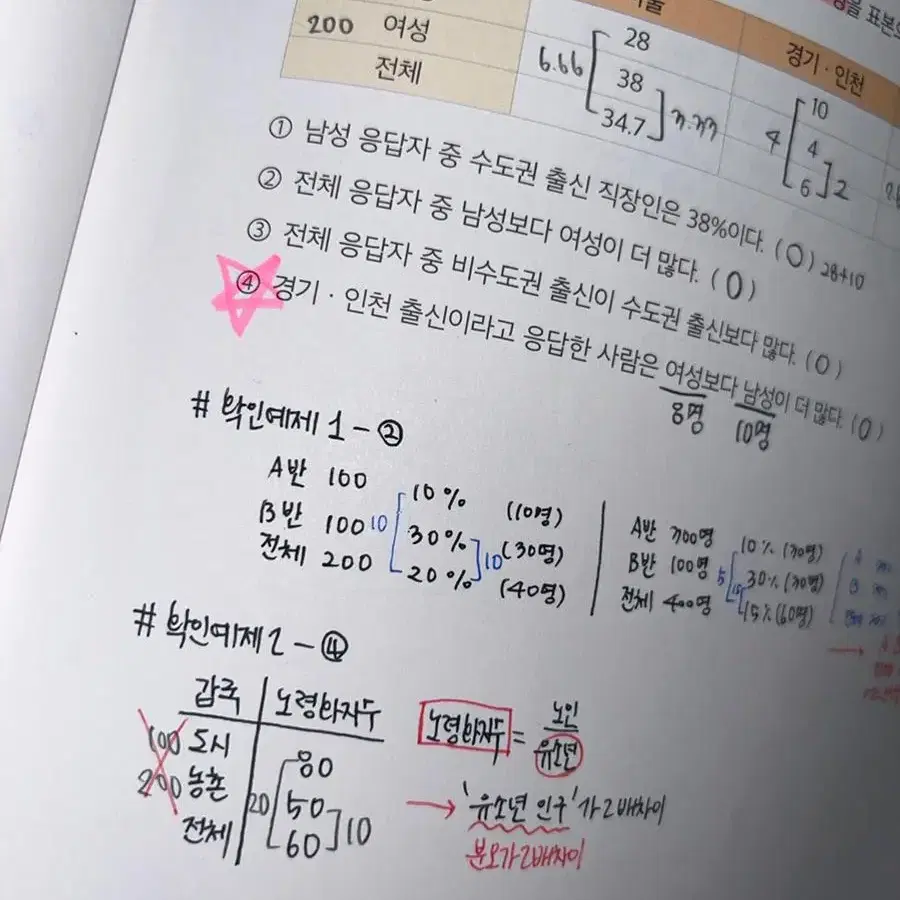 을 표본으
200 여성
전체
6.66
28
38
34.7
경기 · 인천
4
10
4
6
2
① 남성 응답자 중 수도권 출신 직장인은 38%이다. (O) 28+10
② 전체 응답자 중 남성보다 여성이 더 많다. (O)
③ 전체 응답자 중 비수도권 출신이 수도권 출신보다 많다. (O)
④ 경기 · 인천 출신이라고 응답한 사람은 여성보다 남성이 더 많다. (O)
8명 10명
# 확인예제 1 - ②
A반 100 10% (10명)
B반 100 10 30% 10 (30명)
전체 200 20% (40명)
A반 300명 10% (30명)
B반 100명 30% (30명)
전체 400명 15% (60명)
# 확인예제 2 - ④
갑국 노령화지수
100 도시 80
200 농촌 20 50
전체 60 10
노령화지수 = 노인
유소년
→ '유소년 인구'가 2배차이
분모가 2배차이